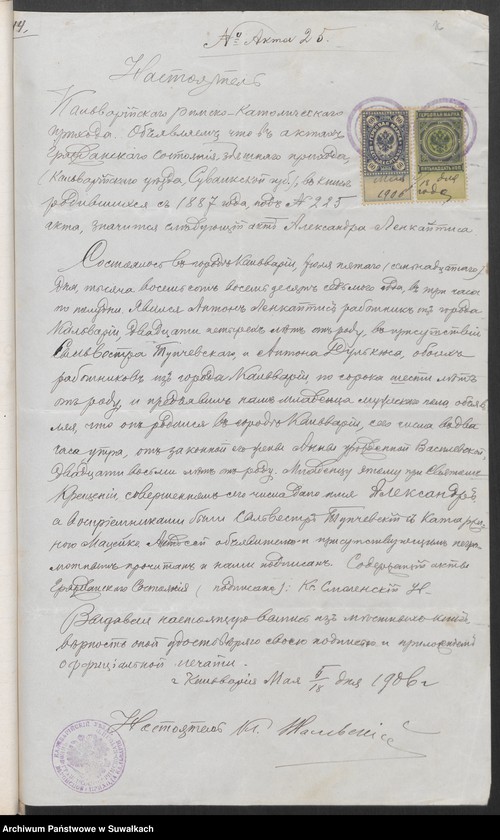 № Акта 25.
Настоятель
Кальварійскаго римско-католическаго
прихода. Объявляетъ что въ актахъ
Гражданскаго состоянія здѣшняго прихода,
Кальварійскаго уѣзда, Сувалкской губ., въ книгѣ
родившихся съ 1887 года, подъ № 225
акта, значится слѣдующій актъ Александра
Состоялось въ городѣ Кальваріи, Іюля пятаго /семнадцатаго/
дня, тысяча восемьсотъ восемьдесятъ седьмого года, въ три часа
по полудни. Явился Антонъ работникъ изъ города
Кальваріи, двадцати четырехъ лѣтъ отъ роду, въ присутствіи
Сильвестра Тупчевскаго, и Антона обоихъ
работниковъ изъ города Кальваріи по сорока шести лѣтъ
отъ роду и предъявилъ намъ младенца мужескаго пола объяв
ляя, что онъ родился въ городѣ Кальваріи, сего числа въ два
часа утра, отъ законной его жены Анны урожденной Василевской,
двадцати восьми лѣтъ отъ роду. Младенцу этому при Святомъ
Крещеніи совершенномъ сего числа дано имя Александръ
а воспріемниками были Сильвестръ Тупчевскій съ
Актъ сей объявителю и присутствующимъ негра
мотнымъ прочитанъ и нами подписанъ. Содержащій акты
Гражданскаго Состоянія (подписано): Кс. Смоленскій Н.
Выдавая настоящую выпись изъ
вѣрность оной удостовѣряю своею подписью и приложеніемъ
оффиціальной печати.
г. Кальварія Мая 5/18 дня 1906 г
Настоятель Кс.
Archiwum Państwowe w Suwałkach